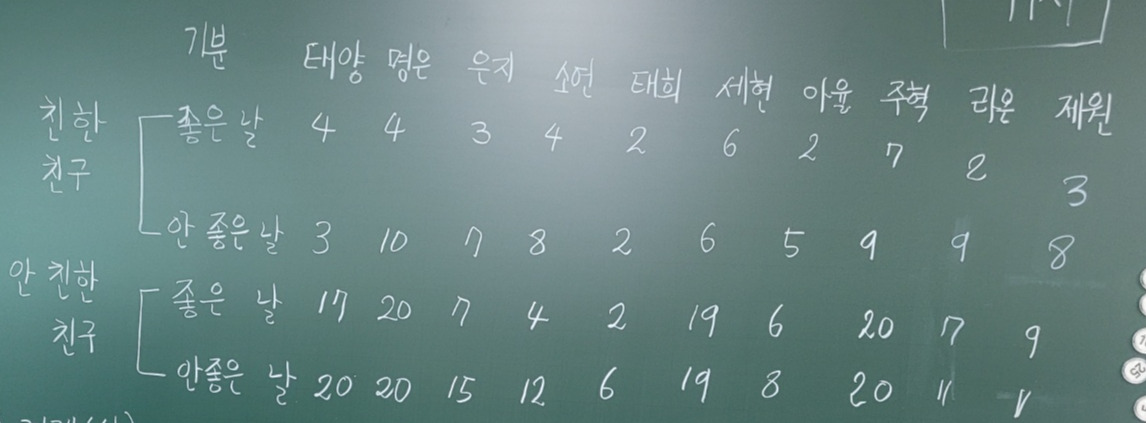 기분 태양 명은 은지 소연 태희 세현 아율 주혁 라온 제원
친한 친구
좋은 날 4 4 3 4 2 6 2 7 2 3
안 좋은 날 3 10 7 8 2 6 5 9 9 8
안 친한 친구
좋은 날 17 20 7 4 2 19 6 20 7 9
안좋은 날 20 20 15 12 6 19 8 20 11